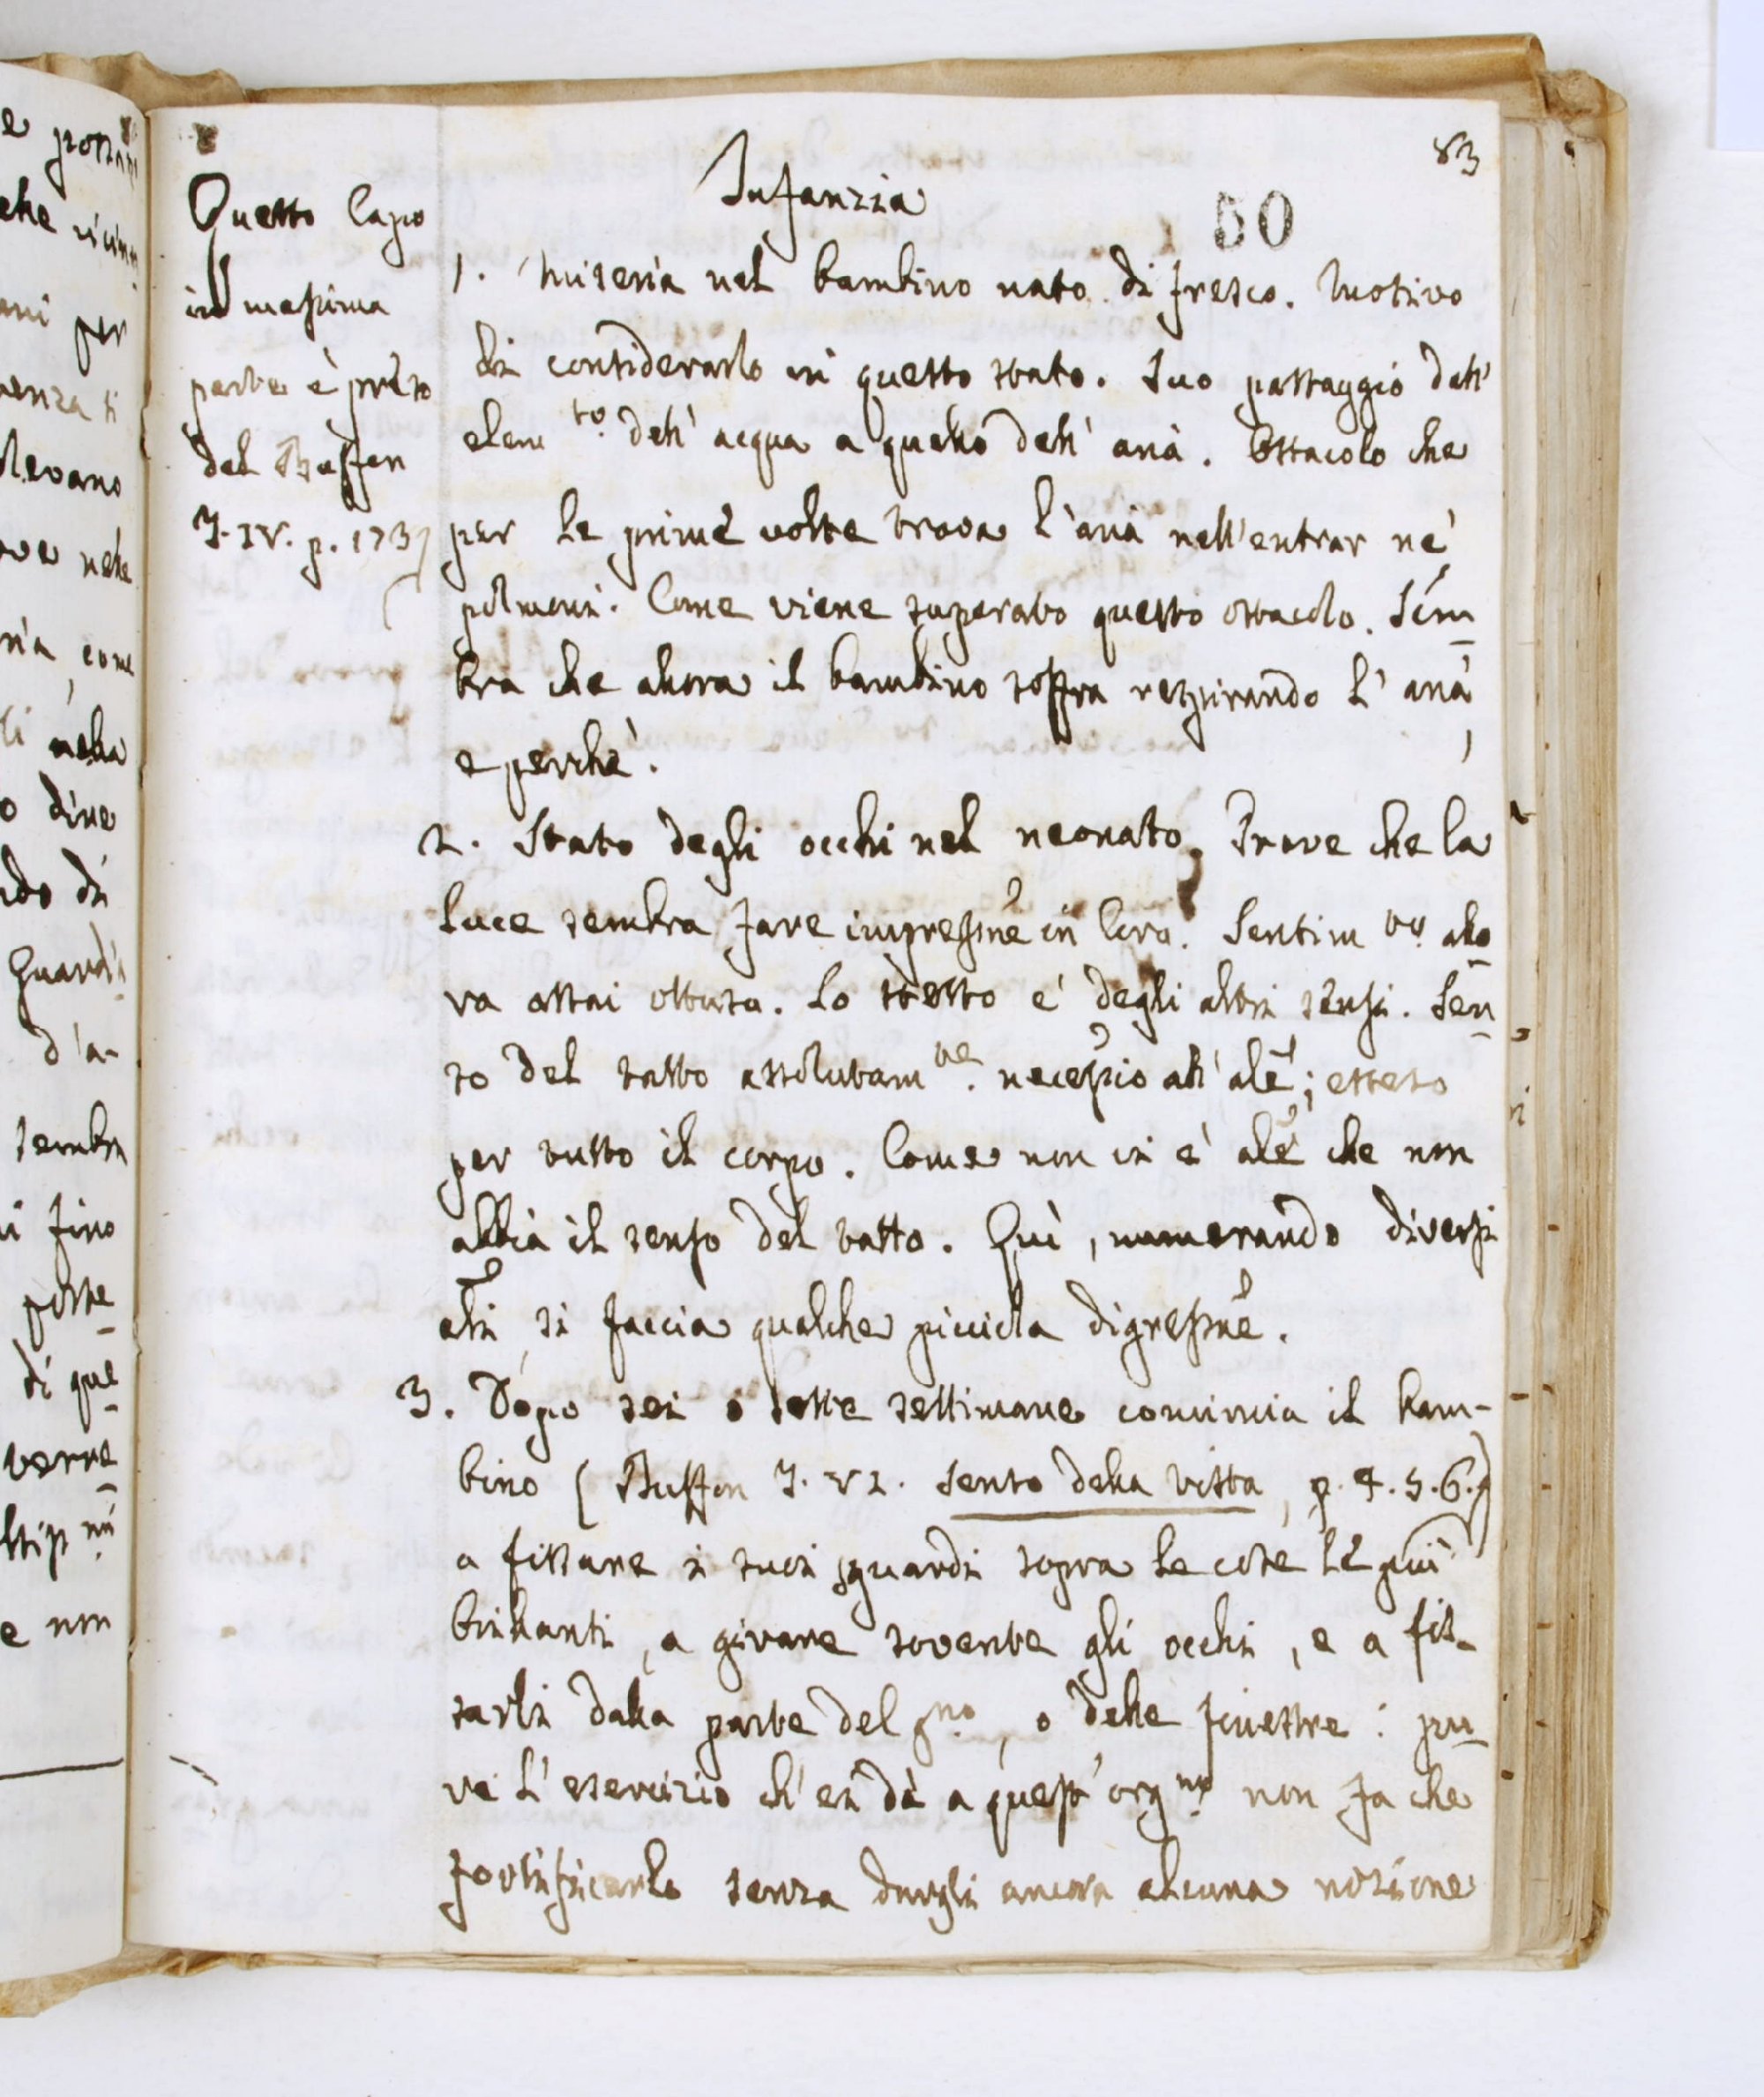 83
50
Infanzia
Questo Capo
in massima
parte è preso
dal Buffon
T. IV. p. 173
1. Miseria nel bambino nato di fresco. Motivo
di considerarlo in questo stato. Suo passaggio dall'
elem.to dell' acqua a quello dell' aria. Ostacolo che
per le prime volte trova l'aria nell'entrar ne'
polmoni. Come viene superato questo ostacolo. Sem
bra che allora il bambino soffra respirando l' aria,
e perchè.
2. Stato degli occhi nel neonato. Prove che la
luce sembra fare impressne in loro. Sentim.to allo
ra assai ottuso. Lo stesso è degli altri sensi. Sen
so del tatto assolutam.te necessio all' ale; esteso
per tutto il corpo. Come non vi è ale che non
abbia il senso del tatto. Quì, numerando diversi
ali si faccia qualche piccicla digressne.
3. Dopo sei o sette settimane comincia il bam-
bino ( Buffon T. VI. Senso della vista, p. 4. 5. 6. 7)
a fissare i suoi sguardi sopra le cose le più
brillanti, a girare sovente gli occhi, e a fis-
sarli dalla parte del gno, o delle finestre: pu
re l' esercizio ch' ei dà a quest' orgno non fa che
fortificarlo senza dargli ancora alcuna nozione
e
che
per
levano
nelle
come
nella
d'a-
sembra
fino
di que
e non